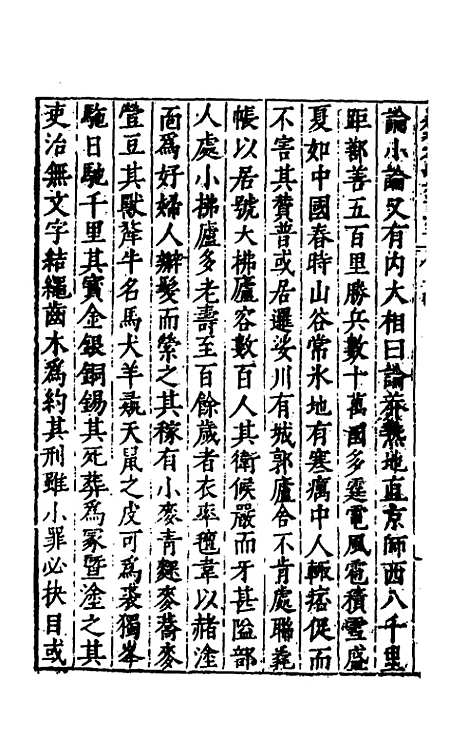 論小論又有内大相曰論莽熱地直京師西八千里
距鄯善五百里勝兵數十萬國多霆電風雹積雪盛
夏如中國春時山谷常氷地有寒癘中人輒痞促而
不害其贊普或居邏娑川有城郭廬舍不肯處聯毳
帳以居號大拂廬容數百人其衛候嚴而牙甚隘部
人處小拂廬多老壽至百餘歲者衣率氊韋以赭塗
面爲好婦人辮髮而縈之其稼有小麥青䴹麥蕎麥
䝁豆其獸犛牛名馬犬羊彘天鼠之皮可爲裘獨峯
駞日馳千里其寳金銀銅錫其死葬爲冢塈塗之其
吏治無文字結繩齒木爲約其刑雖小罪必抉目或